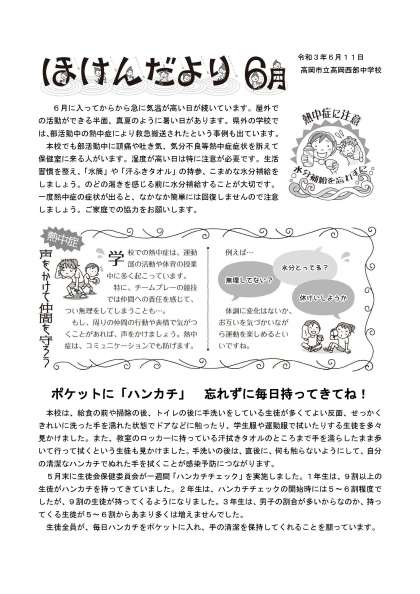 ほけんだより 6月
令和3年6月11日
高岡市立高岡西部中学校
6月に入ってからから急に気温が高い日が続いています。屋外で
の活動ができる半面、真夏のように暑い日があります。県外の学校で
は、部活動中の熱中症により救急搬送されたという事例も出ています。
本校でも部活動中に頭痛や吐き気、気分不良等熱中症症状を訴えて
保健室に来る人がいます。湿度が高い日は特に注意が必要です。生活
習慣を整え、「水筒」や「汗ふきタオル」の持参、こまめな水分補給を
しましょう。のどの渇きを感じる前に水分補給することが大切です。
一度熱中症の症状が出ると、なかなか簡単には回復しませんので注意
しましょう。ご家庭での協力をお願いします。
熱中症に注意
水分補給を忘れず
熱中症
声をかけて仲間を守ろう
学校での熱中症は、運動
部の活動や体育の授業
中に多く起こっています。
特に、チームプレーの競技
では仲間への責任を感じて、
つい無理をしてしまうことも…。
もし、周りの仲間の行動や表情で気がつ
くことがあれば、声をかけましょう。熱中
症は、コミュニケーションでも防げます。
例えば…
水分とってる？
無理してない？
休けいしようか
体調に変化はないか、
お互いを気づかいなが
ら運動を楽しめるとい
いですね。
ポケットに「ハンカチ」 忘れずに毎日持ってきてね！
本校は、給食の前や掃除の後、トイレの後に手洗いをしている生徒が多くてよい反面、せっかく
きれいに洗った手を濡れた状態でドアなどに触ったり、学生服や運動服で拭いたりする生徒を多々
見かけました。また、教室のロッカーに持っている汗拭きタオルのところまで手を濡らしたまま歩
いて行って拭くという生徒も見かけました。手洗いの後は、直後に、何も触らないようにして、自分
の清潔なハンカチでぬれた手を拭くことが感染予防につながります。
5月末に生徒会保健委員会が一週間「ハンカチチェック」を実施しました。1年生は、9割以上の
生徒がハンカチを持ってきていました。2年生は、ハンカチチェックの開始時には5～6割程度で
したが、9割の生徒が持ってくるようになりました。3年生は、男子の割合が多いからなのか、持っ
てくる生徒が5～6割からあまり多くは増えませんでした。
生徒全員が、毎日ハンカチをポケットに入れ、手の清潔を保持してくれることを願っています。